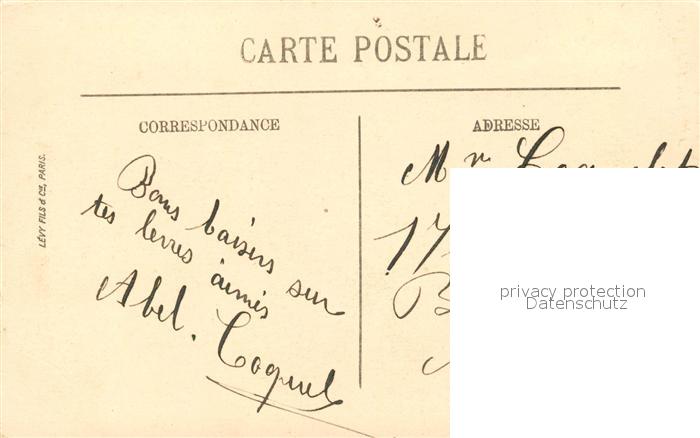 CARTE POSTALE
CORRESPONDANCE
ADRESSE
LÉVY FILS & Cie, PARIS.
Bons baisers sur
tes levres aimés
Abel. Coquel
Mr
17
B
privacy protection
Datenschutz